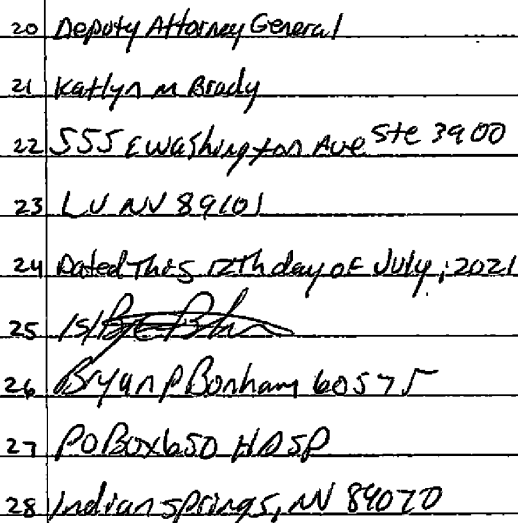 20 Deputy Attorney General
21 Katlyn M Brady
22 555 E Washington Ave Ste 3900
23 LV NV 89101
24 Dated This 12Th day of July, 2021
25 /s/
26 Bryan P Bonham 60575
27 PO Box 650 HDSP
28 Indian springs, NV 89070